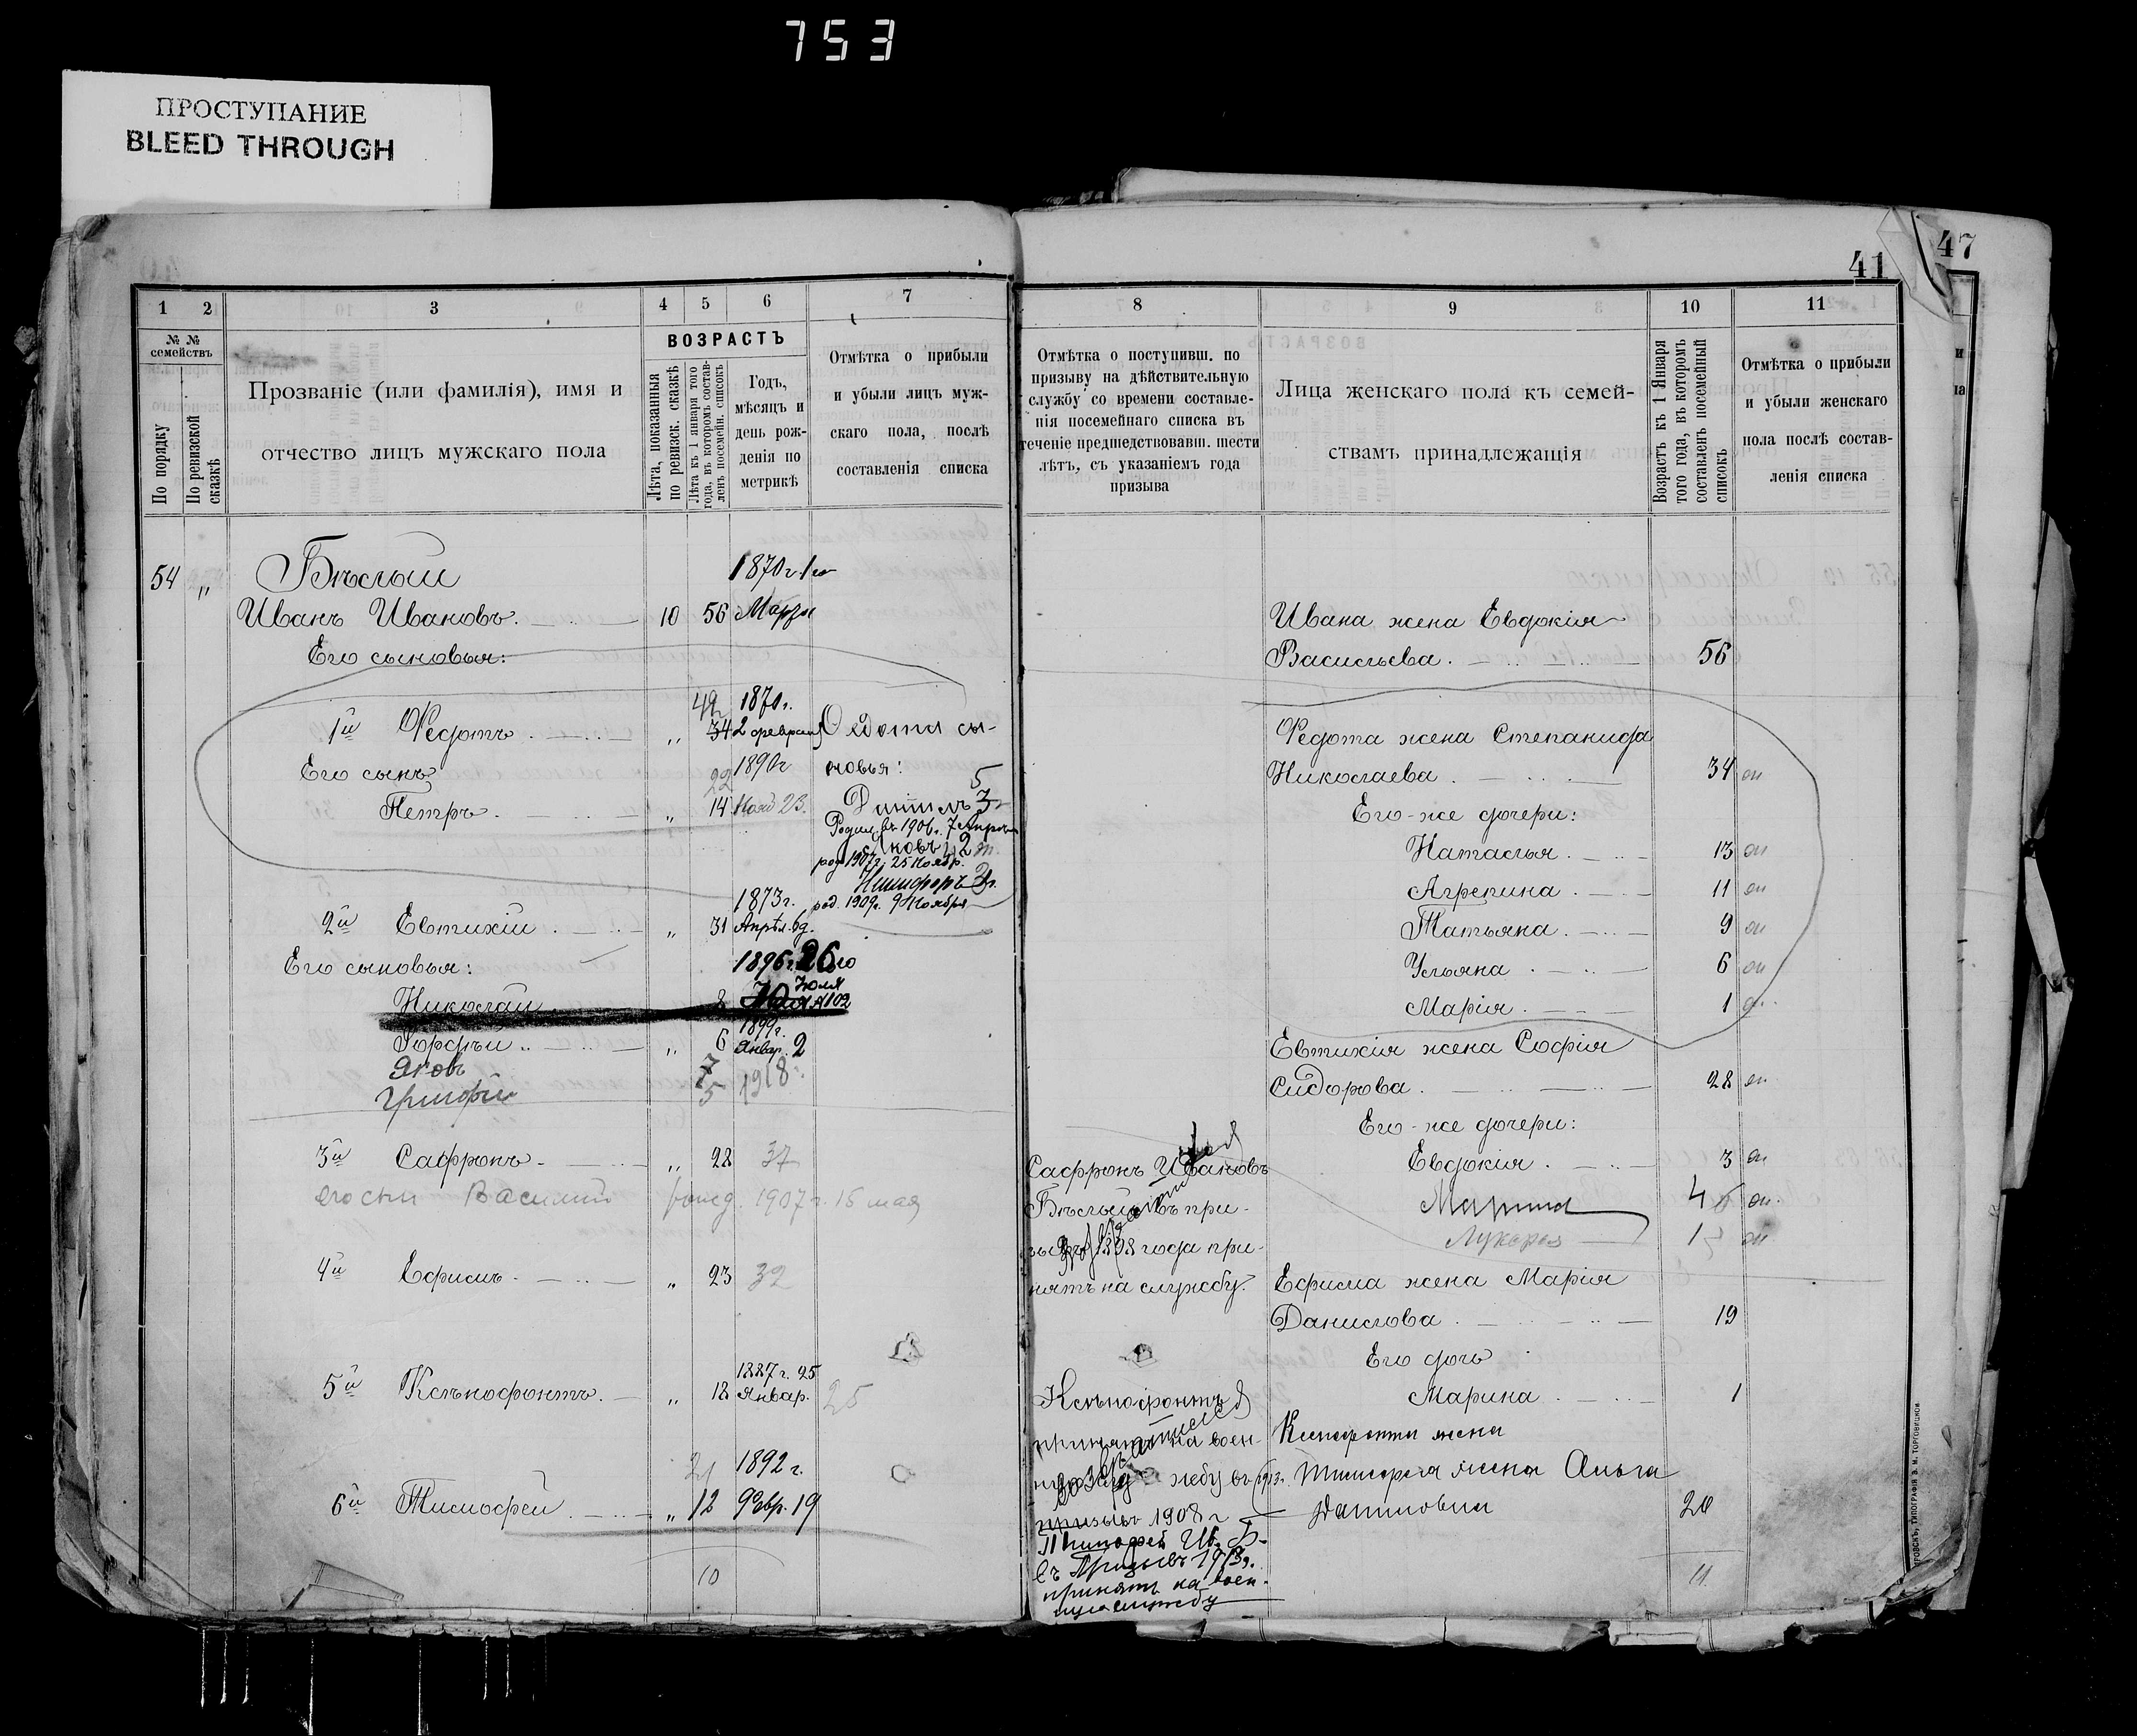 753
ПРОСТУПАНИЕ
BLEED THROUGH
47
41
1 2 3 4 5 6 7
№ №
семействъ
По порядку
По ревизской сказкѣ
Прозваніе (или фамилія), имя и
отчество лицъ мужскаго пола
ВОЗРАСТЪ
Лѣта, показанныя по ревизск. сказкѣ
Лѣта къ 1 января того года, въ которомъ составленъ посемейн. списокъ
Годъ,
мѣсяцъ и
день рож-
денія по
метрикѣ
Отмѣтка о прибыли
и убыли лицъ муж-
скаго пола, послѣ
составленія списка
54 „ Бѣлый 1870 г.
Иванъ Ивановъ. 10 56
Его сыновья:
49 1870 г.
1й Федотъ „ 34 2 февраля Федота сы-
Его сынъ 22 1890 г новья:
Петръ. „ 14 Нояб 23. 5
Родил. въ 1906 г. 7 Апрѣля
род 1907 г. 25 Ноябр.
1873 г. род. 1909 г. 9 Ноября
2й Евтихій „ 31 Апрѣл. 6д.
Его сыновья: 1896 г. 26го
Николай 8 Юля
1899 г.
Горфѣй „ 6 Январ. 2
Яковъ 7
5 1918
3й Сафронъ „ 28 37
его сынъ Василий рожд. 1907 г. 15 мая
4й Ефимъ „ 23 32
1887 г. 25
5й Ксенофонтъ. „ 18 Январ. 25
21 1892 г.
6й Тимофей „ 12 Февр. 19
10
8 9 10 11
Отмѣтка о поступивш. по
призыву на дѣйствительную
службу со времени составле-
нія посемейнаго списка въ
теченіе предшедствовавш. шести
лѣтъ, съ указаніемъ года
призыва
Лица женскаго пола къ семей-
ствамъ принадлежащія
Возрастъ къ 1 Января того года, въ которомъ составленъ посемейный списокъ
Отмѣтка о прибыли
и убыли женскаго
пола послѣ состав-
ленія списка
Ивана жена Евдокія
Васильева. 56
Федота жена Степанида
Николаева 34
Его-же дочери:
Наталья 13
Агрепина 11
Татьяна 9
Ульяна 6
Марія 1
Евтихія жена Софія
Сидорова 28
Его-же дочери:
Сафронъ Ивановъ Евдокія 3
Бѣлый въ при- Марина 4
1898 года при- Лукерья 1
нятъ на службу. Ефима жена Марія
Данилова 19
Его дочь
Ксенофонтъ Марина 1
принятъ на воен- Ксенофонта жена
жбу въ Тимофея жена Ольга
призывъ 1908 г Даниловна 20
Тимофей Ив. Б.
въ Призывъ 1913 г.
принятъ на воен-
ную службу
11